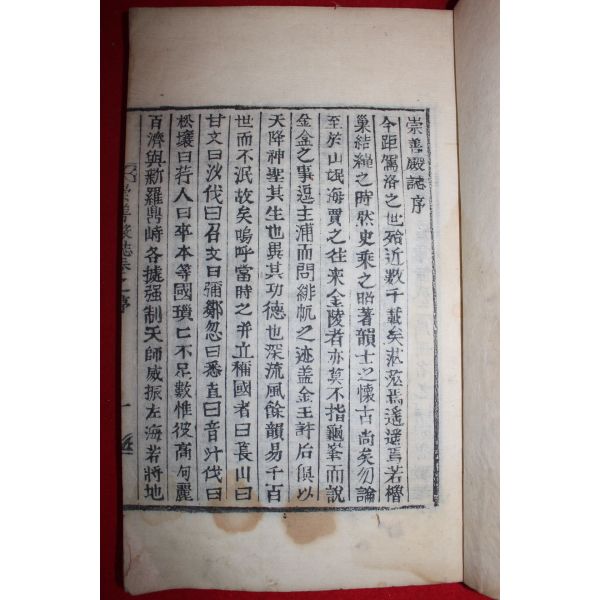 崇善殿誌序
今距駕洛之世殆近數千載矣茫茫焉遙遙焉若櫓
巢結繩之時然史乘之昭著韻士之懷古尙矣勿論
至於山氓海賈之往來金陵者亦莫不指龜峯而說
金金之事逗主浦而問緋帆之迹盖金王許后俱以
天降神聖其生也異其功德也深流風餘韻易千百
世而不泯故矣嗚呼當時之並立稱國者曰萇山曰
甘文曰沙伐曰召文曰彌鄒忽曰悉直曰音汁伐曰
松壤曰荇人曰卒本等國瑣〻不足數惟彼高句麗
百濟與新羅鼎峙各據强制天師威振左海若將地
崇善殿誌卷之序
一